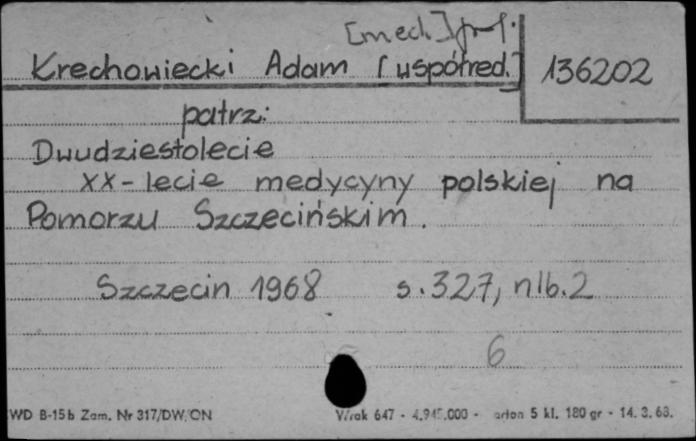 [med.] prof.
Krechowiecki Adam [współred.] 136202
patrz:
Dwudziestolecie
XX-lecie medycyny polskiej na
Pomorzu Szczecińskim.
Szczecin 1968 s. 327, nlb. 2
6
WD B-15b Zam. Nr 317/DW/ON Wrak 647 - 4.945.000 - karton 5 kl. 180 gr - 14. 3. 63.